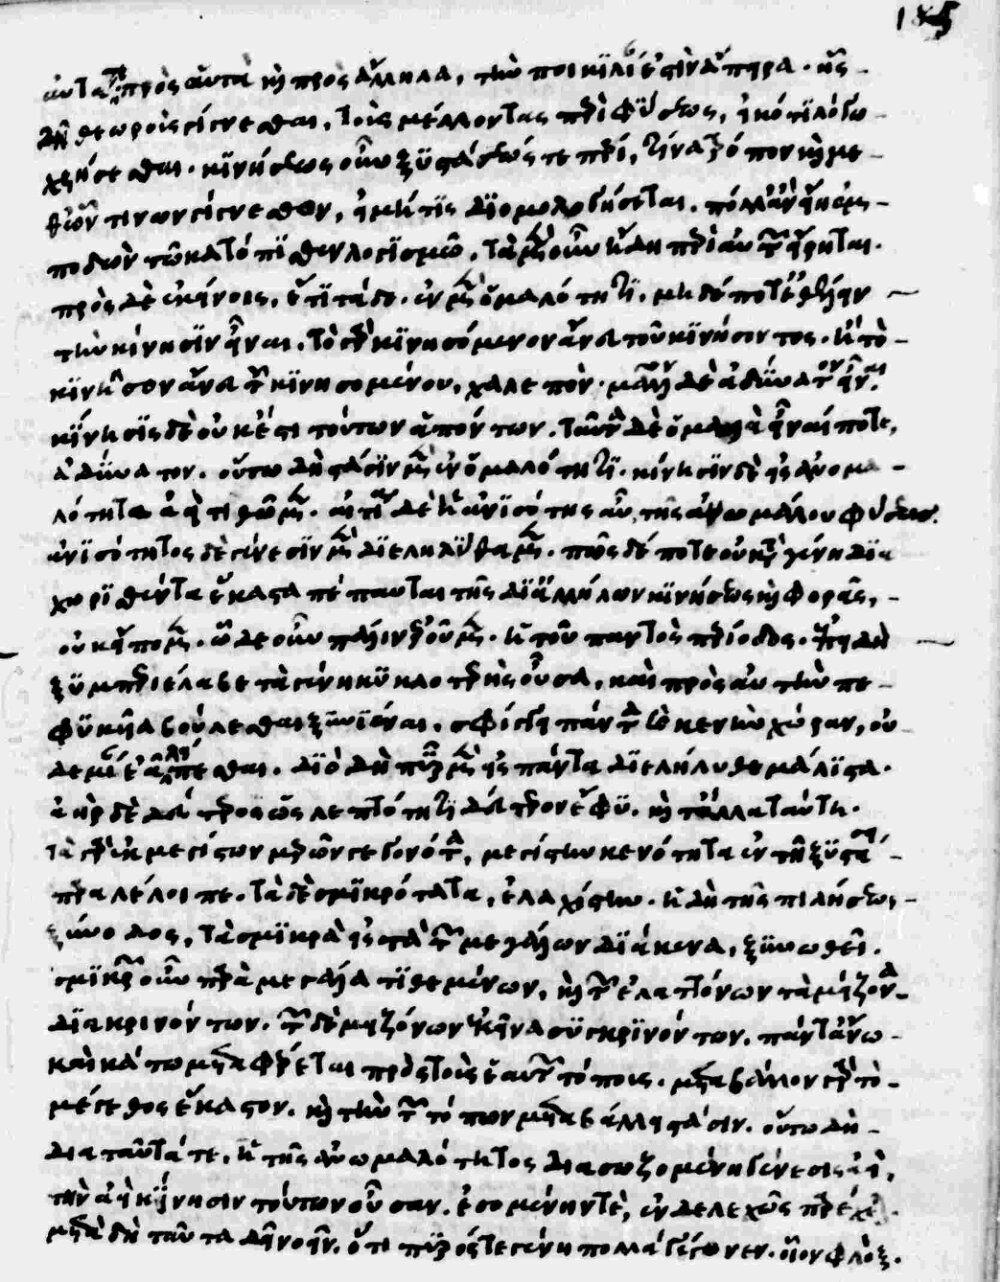 αὐτά τε πρὸς αὐτὰ καὶ πρὸς ἄλληλα, τὴν ποικιλίαν ἐστὶν ἄπειρα. ἧς
δὴ θεωροὺς γίγνεσθαι, τοὺς μέλλοντας περὶ φύσεως, εἰκότι λόγω
χρήσεσθαι. κινήσεως οὖν ξυστάσεώς τε πέρι, τίνα τρόπον καὶ με-
θ' ὧν τινων γίγνεσθον, εἰ μή τις διομολογήσεται, πόλλ' ἂν εἴη ἐμ-
ποδὼν τῶ κατόπισθεν λογισμῶ. τὰ μὲν οὖν ἤδη περὶ αὐτῶν εἴρηται.
πρὸς δὲ ἐκείνοις, ἔτι τάδε. ἐν μὲν ὁμαλότητι, μηδέποτε ἐθέλειν
τὴν κίνησιν εἶναι. τὸ γὰρ κινησόμενον ἄνευ τοῦ κινήσοντος. ἢ τὸ
κινῆσον ἄνευ τοῦ κινησομένου, χαλεπόν. μᾶλλον δὲ ἀδύνατον εἶναι.
κίνησις δὲ οὐκ ἔστι τούτων ἀπόντων. ταῦτα δὲ ὁμαλὰ εἶναί ποτε,
ἀδύνατον. οὕτω δὴ στάσιν μὲν ἐν ὁμαλότητι. κίνησιν δὲ εἰς ἀνωμα-
λότητα ἀεὶ τιθῶμεν. αἰτία δὲ ἡ ἀνισότης αὖ, τῆς ἀνωμάλου φύσεως.
ἀνισότητος δὲ γένεσιν μὲν διεληλύθαμεν. πῶς δέ ποτε οὐ κατὰ γένη δια
χωρισθέντα ἕκαστα πέπαυται τῆς δι' ἀλλήλων κινήσεως καὶ φορᾶς,
οὐκ εἴπομεν. ὧδε οὖν πάλιν ἐροῦμεν. ἡ τοῦ παντὸς περίοδος. ἐπειδὴ
ξυμπεριέλαβε τὰ γένη κυκλοτερὴς οὖσα, καὶ πρὸς αὑτὴν πε-
φυκυῖα βούλεσθαι ξυνιέναι. σφίγγει πάντα καὶ κενὴν χώραν, οὐ
δεμίαν ἐᾶ λείπεσθαι. διὸ δὴ πῦρ μὲν εἰς πάντα διελήλυθε μάλιστα.
ἀὴρ δὲ δεύτερος ὡς λεπτότητι δεύτερον ἔφυ. καὶ τἄλλα ταύτη.
τὰ γὰρ ἐκ μεγίστων μερῶν γεγονότα, μεγίστην κενότητα ἐν τῆ ξυστάσει
παραλέλοιπε. τὰ δὲ σμικρότατα, ἐλαχίστην. ἡ δὴ τῆς πιλήσεως
ξύνοδος, τὰ σμικρὰ εἰς τὰ τῶν μεγάλων διάκενα, ξυνωθεῖ.
σμικρῶν οὖν παρὰ μεγάλα τιθεμένων, καὶ τῶν ἐλαττόνων τὰ μείζονα
διακρινόντων. τῶν δὲ μειζόνων ἐκεῖνα συγκρινόντων. πάντ' ἄνω
καὶ κάτω μεταφέρεται πρὸς τοὺς ἑαυτῶν τόπους. μεταβάλλον γὰρ τὸ
μέγεθος ἕκαστον. καὶ τὴν τῶν τόπων μεταβάλλει στάσιν. οὕτω δὴ
δια ταῦτά τε, ἡ τῆς ἀνωμαλότητος διασωζομένη γένεσις ἀεὶ,
τὴν ἀεὶ κίνησιν τούτων οὖσαν. ἐσομένην τὲ, ἐνδελεχῶς παρέχει.
μετὰ δὴ ταῦτα δεῖ νοεῖν. ὅτι πυρός τε γένη πολλὰ γέγονεν. οἷον φλόξ.